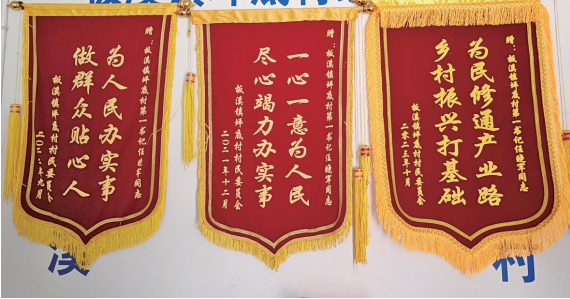 赠:板溪镇坪底村第一书记任晓军同志
为人民办实事
做群众贴心人
板溪镇坪底村村民委员会
赠:板溪镇坪底村第一书记任晓军同志
一心一意为人民
尽心竭力办实事
板溪镇坪底村村民委员会
二〇二一年十二月
赠:板溪镇坪底村第一书记任晓军同志
为民修通产业路
乡村振兴打基础
板溪镇坪底村村民委员会
二零二三年十月
溪
村